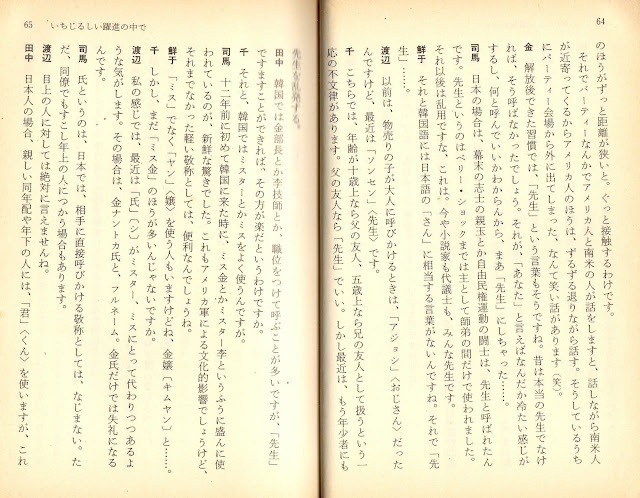 64
のほうがずっと距離が狭いと。ぐっと接触するわけです。
それでパーティーなんかでアメリカ人と南米の人が話をしますと、話しながら南米人
が近寄ってくるからアメリカ人のほうは、ずるずる退りながら話す。そうしているうち
にパーティー会場から外に出てしまった、なんて笑い話があります(笑)。
金 解放後できた習慣では、「先生」という言葉もそうですね。昔は本当の先生でなけ
れば、そう呼ばなかったでしょう。それが、「あなた」と言えばなんだか冷たい感じが
するし、何と呼んでいいかわからんから、まあ「先生」にしちゃった……。
司馬 日本の場合は、幕末の志士の親玉とか自由民権運動の闘士は、先生と呼ばれたん
です。先生というのはペリー・ショックまでは主として師弟の間だけで使われました。
それ以後は乱用ですな、これは。今や小説家も代議士も、みんな先生です。
鮮于 それと韓国語には日本語の「さん」に相当する言葉がないんですね。それで「先
生」……。
渡辺 以前は、物売りの子が大人に呼びかけるときは、「アジョシ」〈おじさん〉だった
んですけど、最近は「ソンセン」〈先生〉です。
千 こちらでは、年齢が十歳上なら父の友人、五歳上なら兄の友人として扱うという一
応の不文律があります。父の友人なら「先生」でいい。しかし最近は、もう年少者にも
65 いちじるしい躍進の中で
先生、乱発する。
田中 韓国では金部長とか李技師とか、職位をつけて呼ぶことが多いですが、「先生」
ですますことができれば、その方が楽だというわけですか。
千 それと、韓国ではミスターとかミスをよく使うんですが。
司馬 十二年前に初めて韓国に来た時に、ミス金とかミスター李というふうに盛んに使
われているのが、新鮮な驚きでした。これもアメリカ軍による文化的影響でしょうけど、
それまでなかった軽い敬称としては、便利なんでしょうね。
鮮于 「ミス」でなく「ヤン」〈嬢〉を使う人もいますけどね、金嬢〔キムヤン〕と……。
千 しかし、まだ「ミス金」のほうが多いんじゃないですか。
渡辺 私の感じでは、最近は「氏」〔シ〕がミスター、ミスにとって代わりつつあるよ
うな気がします。その場合は、金ナントカ氏と、フルネーム。金氏だけでは失礼になる
んです。
司馬 氏というのは、日本では、相手に直接呼びかける敬称としては、なじまない。た
だ、同僚でもすこし年上の人につかう場合もあります。
渡辺 目上の人に対しては絶対に言えませんね。
田中 日本人の場合、親しい同年配や年下の人には、「君」〈くん〉を使いますが、これ